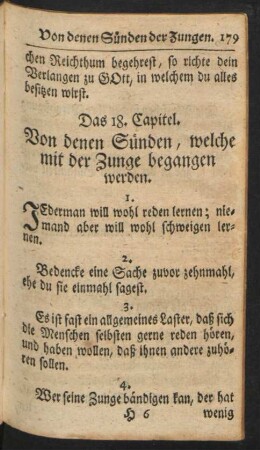 Von denen Sünden der Zungen. 179
chen Reichthum begehrest, so richte dein
Verlangen zu GOtt, in welchem du alles
besitzen wirst.
Das 18. Capitel.
Von denen Sünden, welche
mit der Zunge begangen
werden.
1.
JEderman will wohl reden lernen; nie-
mand aber will wohl schweigen ler-
nen.
2.
Bedencke eine Sache zuvor zehnmahl,
ehe du sie einmahl sagest.
3.
Es ist fast ein allgemeines Laster, daß sich
die Menschen selbsten gerne reden hören,
und haben wollen, daß ihnen andere zuhö-
ren sollen.
4.
Wer seine Zunge bändigen kan, der hat
H 6 wenig